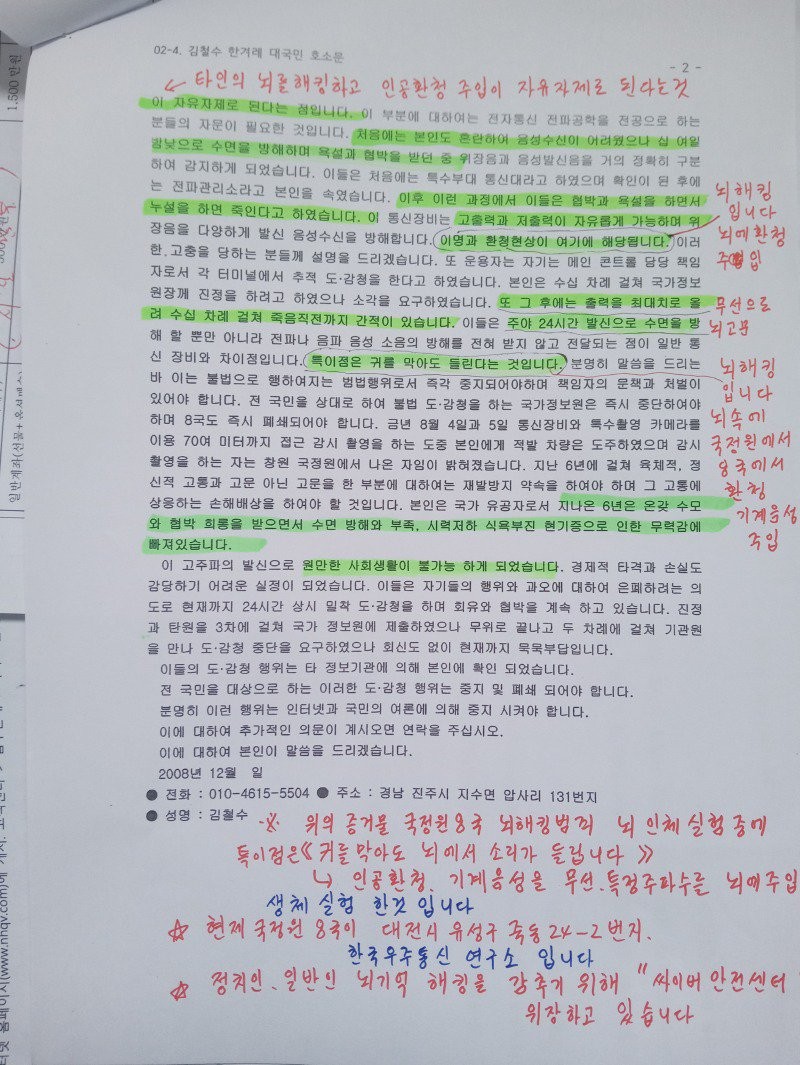 02-4. 김철수 한겨레 대국민 호소문
- 2 -
← 타인의 뇌를해킹하고 인공환청 주입이 자유자제로 된다는것
이 자유자제로 된다는 점입니다. 이 부분에 대하여는 전자통신 전파공학을 전공으로 하는
분들의 자문이 필요한 것입니다. 처음에는 본인도 혼란하여 음성수신이 어려웠으나 십 여일
밤낮으로 수면을 방해하며 욕설과 협박을 받던 중 위장음과 음성발신음을 거의 정확히 구분
하여 감지하게 되었습니다. 이들은 처음에는 특수부대 통신대라고 하였으며 확인이 된 후에
는 전파관리소라고 본인을 속였습니다. 이후 이런 과정에서 이들은 협박과 욕설을 하면서
누설을 하면 죽인다고 하였습니다. 이 통신장비는 고출력과 저출력이 자유롭게 가능하며 위
장음을 다양하게 발신 음성수신을 방해합니다. 이명과 환청현상이 여기에 해당됩니다. 이러
한 고충을 당하는 분들께 설명을 드리겠습니다. 또 운용자는 자기는 메인 콘트롤 담당 책임
자로서 각 터미널에서 추적 도·감청을 한다고 하였습니다. 본인은 수십 차례 걸쳐 국가정보
원장께 진정을 하려고 하였으나 소각을 요구하였습니다. 또 그 후에는 출력을 최대치로 올
려 수십 차례 걸쳐 죽음직전까지 간적이 있습니다. 이들은 주야 24시간 발신으로 수면을 방
해 할 뿐만 아니라 전파나 음파 음성 소음의 방해를 전혀 받지 않고 전달되는 점이 일반 통
신 장비와 차이점입니다. 특이점은 귀를 막아도 들린다는 것입니다. 분명히 말씀을 드리는
바 이는 불법으로 행하여지는 범법행위로서 즉각 중지되어야하며 책임자의 문책과 처벌이
있어야 합니다. 전 국민을 상대로 하여 불법 도·감청을 하는 국가정보원은 즉시 중단하여야
하며 8국도 즉시 폐쇄되어야 합니다. 금년 8월 4일과 5일 통신장비와 특수촬영 카메라를
이용 70여 미터까지 접근 감시 촬영을 하는 도중 본인에게 적발 차량은 도주하였으며 감시
촬영을 하는 자는 창원 국정원에서 나온 자임이 밝혀졌습니다. 지난 6년에 걸쳐 육체적, 정
신적 고통과 고문 아닌 고문을 한 부분에 대하여는 재발방지 약속을 하여야 하며 그 고통에
상응하는 손해배상을 하여야 할 것입니다. 본인은 국가 유공자로서 지나온 6년은 온갖 수모
와 협박 희롱을 받으면서 수면 방해와 부족, 시력저하 식욕부진 현기증으로 인한 무력감에
빠져있습니다.
이 고주파의 발신으로 원만한 사회생활이 불가능 하게 되었습니다. 경제적 타격과 손실도
감당하기 어려운 실정이 되었습니다. 이들은 자기들의 행위와 과오에 대하여 은폐하려는 의
도로 현재까지 24시간 상시 밀착 도·감청을 하며 회유와 협박을 계속 하고 있습니다. 진정
과 탄원을 3차에 걸쳐 국가 정보원에 제출하였으나 무위로 끝나고 두 차례에 걸쳐 기관원
을 만나 도·감청 중단을 요구하였으나 회신도 없이 현재까지 묵묵부답입니다.
이들의 도·감청 행위는 타 정보기관에 의해 본인에 확인 되었습니다.
전 국민을 대상으로 하는 이러한 도·감청 행위는 중지 및 폐쇄 되어야 합니다.
분명히 이런 행위는 인터넷과 국민의 여론에 의해 중지 시켜야 합니다.
이에 대하여 추가적인 의문이 계시오면 연락을 주십시오.
이에 대하여 본인이 말씀을 드리겠습니다.
2008년 12월 일
● 전화 : 010-4615-5504 ● 주소 : 경남 진주시 지수면 압사리 131번지
● 성명 : 김철수
뇌해킹
입니다
뇌에환청
주입
무선으로
뇌고문
뇌해킹
입니다
뇌속에
국정원에서
8국에서
환청
기계음성
주입
※ 위의 증거물 국정원8국 뇌해킹범죄 뇌 인체실험중에
특이점은《귀를막아도 뇌에서 소리가 들립니다》
↳ 인공환청, 기계음성을 무선.특정주파수를 뇌에주입
생체 실험 한것 입니다
☆ 현재 국정원 8국이 대전시 유성구 죽동 24-2 번지.
한국우주통신 연구소 입니다
☆ 정치인.일반인 뇌기억 해킹을 감추기 위해 "싸이버안전센터"
위장하고 있습니다
1,500 만원
일반계좌(선물+
터넷 홈페이지(www.nhqv.com)에 게시,